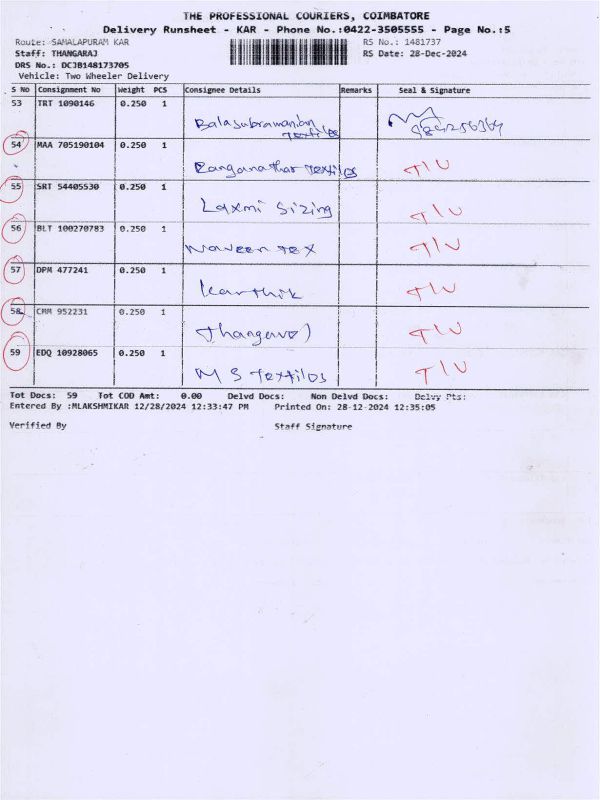 THE PROFESSIONAL COURIERS, COIMBATORE
Delivery Runsheet - KAR - Phone No.:0422-3505555 - Page No.:5
Route: SAMALAPURAM KAR RS No.: 1481737
Staff: THANGARAJ RS Date: 28-Dec-2024
DRS No.: DCJB148173705
Vehicle: Two Wheeler Delivery
S No Consignment No Weight PCS Consignee Details Remarks Seal & Signature
53 TRT 1090146 0.250 1
Balasubramanian
Textiles
54 MAA 705190104 0.250 1
Ranganathar Textiles TIU
55 SRT 54405530 0.250 1
Laxmi Sizing TIU
56 BLT 100270783 0.250 1
Naveen Tex TIU
57 DPM 477241 0.250 1
Karthik TIU
58 CMM 952231 0.250 1
Thangavel TIU
59 EDQ 10928065 0.250 1
M S Textiles TIU
Tot Docs: 59 Tot COD Amt: 0.00 Delvd Docs: Non Delvd Docs: Delvy Pts:
Entered By :MLAKSHMIKAR 12/28/2024 12:33:47 PM Printed On: 28-12-2024 12:35:05
Verified By Staff Signature